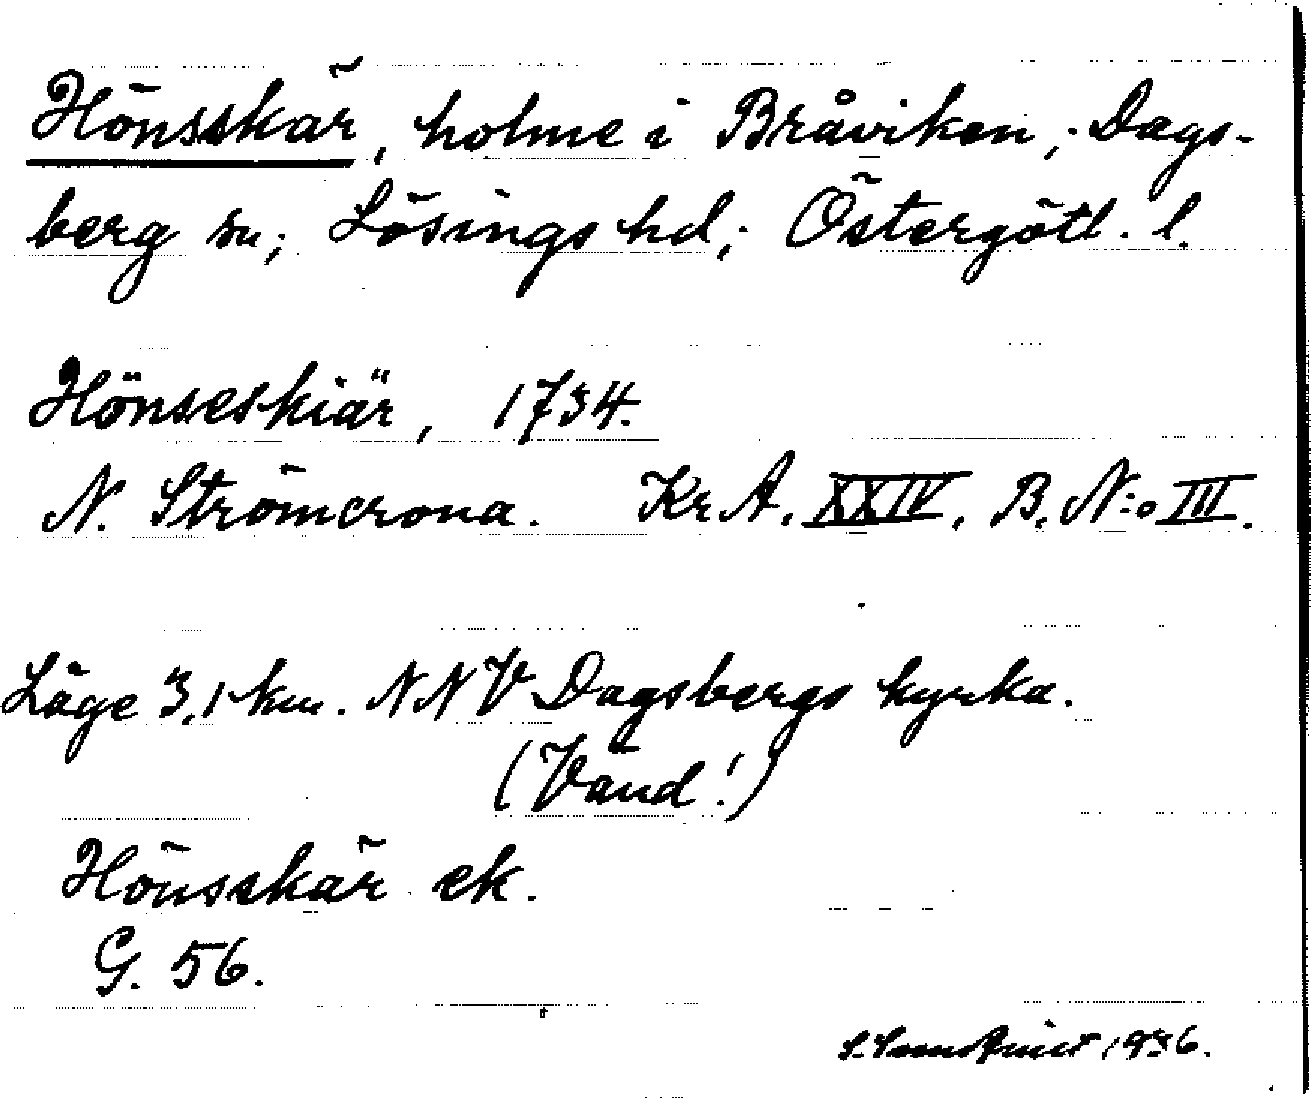 Hönsskär, holme i Bråviken; Dags-
berg sn; Lösings hd; Östergötl. l.
Hönseskiär, 1734.
N. Strömcrona. Kr A. XXIV. B. N:o III.
Läge 3,1 km. NNV Dagsbergs kyrka.
(Vänd!)
Hönsskär ek.
G. 56.
S. 1936.